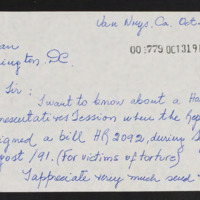 Van Nuys. Ca. Oct.
an
00:775 OCT319
ington. D.C.
Sir:
I want to know about a Ho
resentatives Session when the Rep
igned a bill HR 2092, during S
gost /91. (For victims of torture)
I appreciate very much send